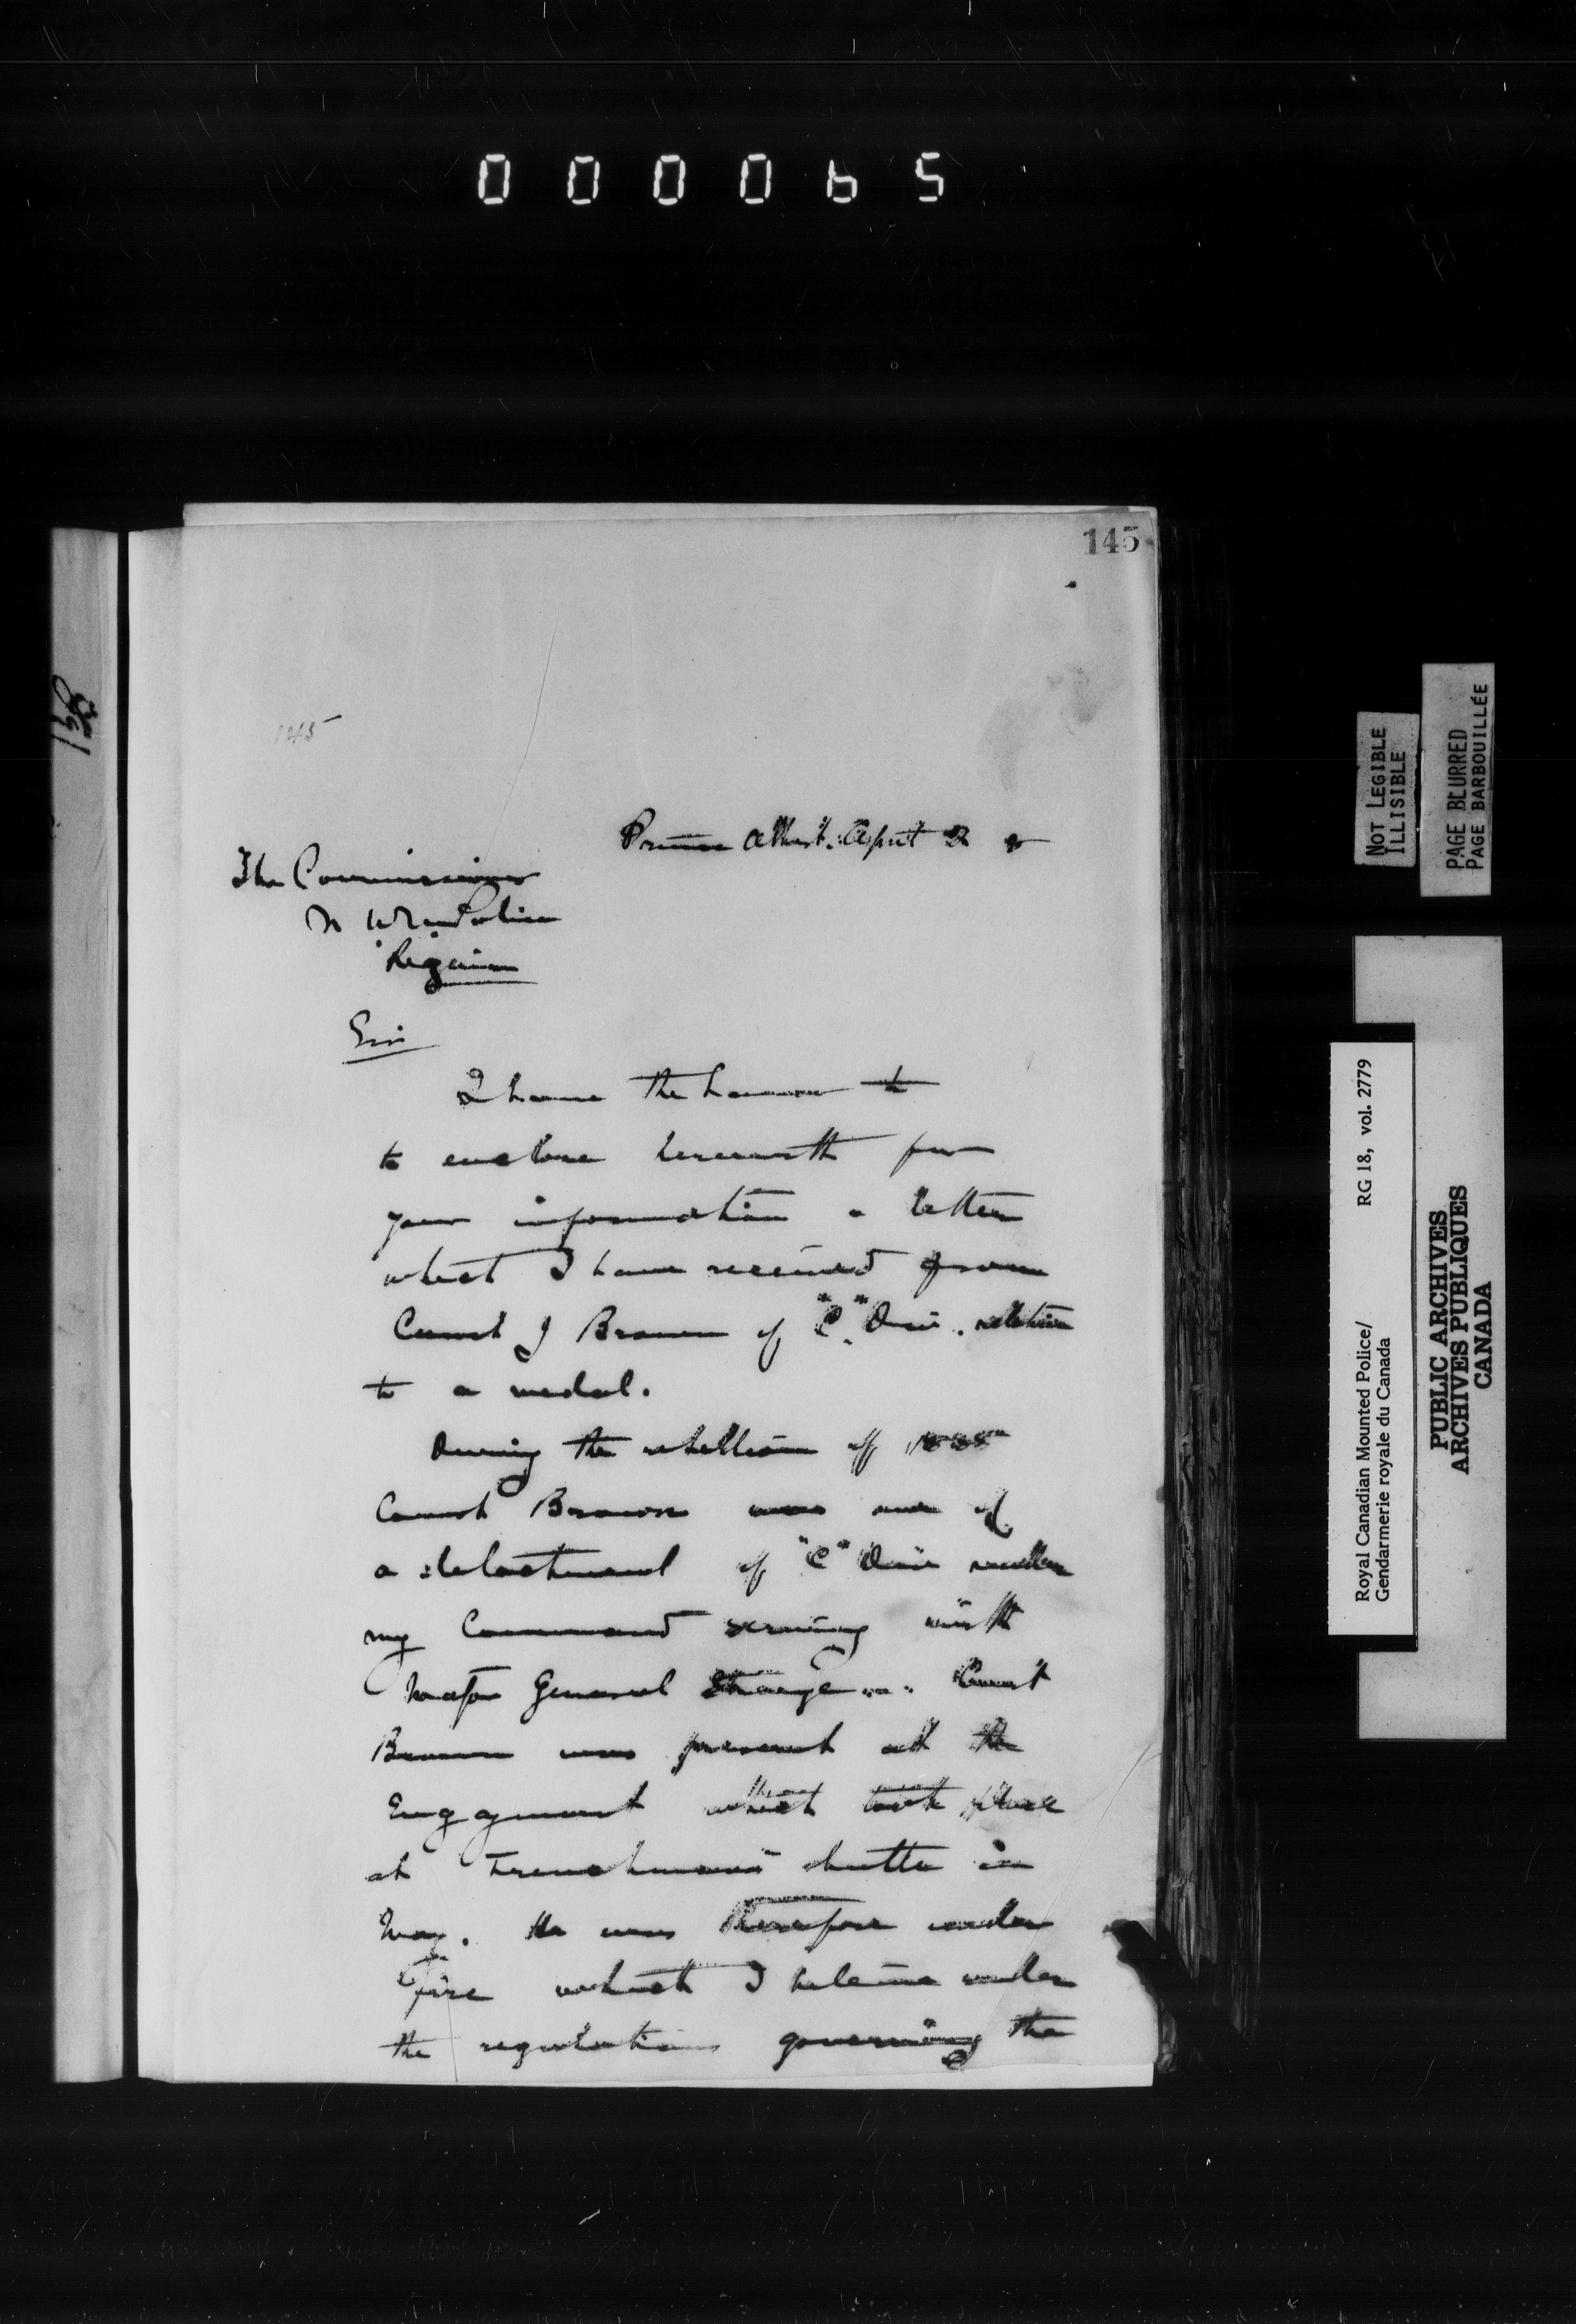 000065
145
145
Prince Albert. April 2
The Commissioner
N W M Police
Regina
Sir
I have the honour to
to enclose herewith for
your information a letter
which I have received from
Const J Brown of "C" Divn. relative
to a medal.
During the rebellion of 1885
Const Brown was one of
a detachment of "C" Divn under
my Command serving with
Major General Strange. Const
Brown was present at the
Engagement which took place
at Frenchman's butte in
May. He was therefore under
fire which I believe under
the regulations governing the
NOT LEGIBLE
ILLISIBLE
PAGE BLURRED
PAGE BARBOUILLÉE
Royal Canadian Mounted Police/
Gendarmerie royale du Canada
RG 18, vol. 2779
PUBLIC ARCHIVES
ARCHIVES PUBLIQUES
CANADA